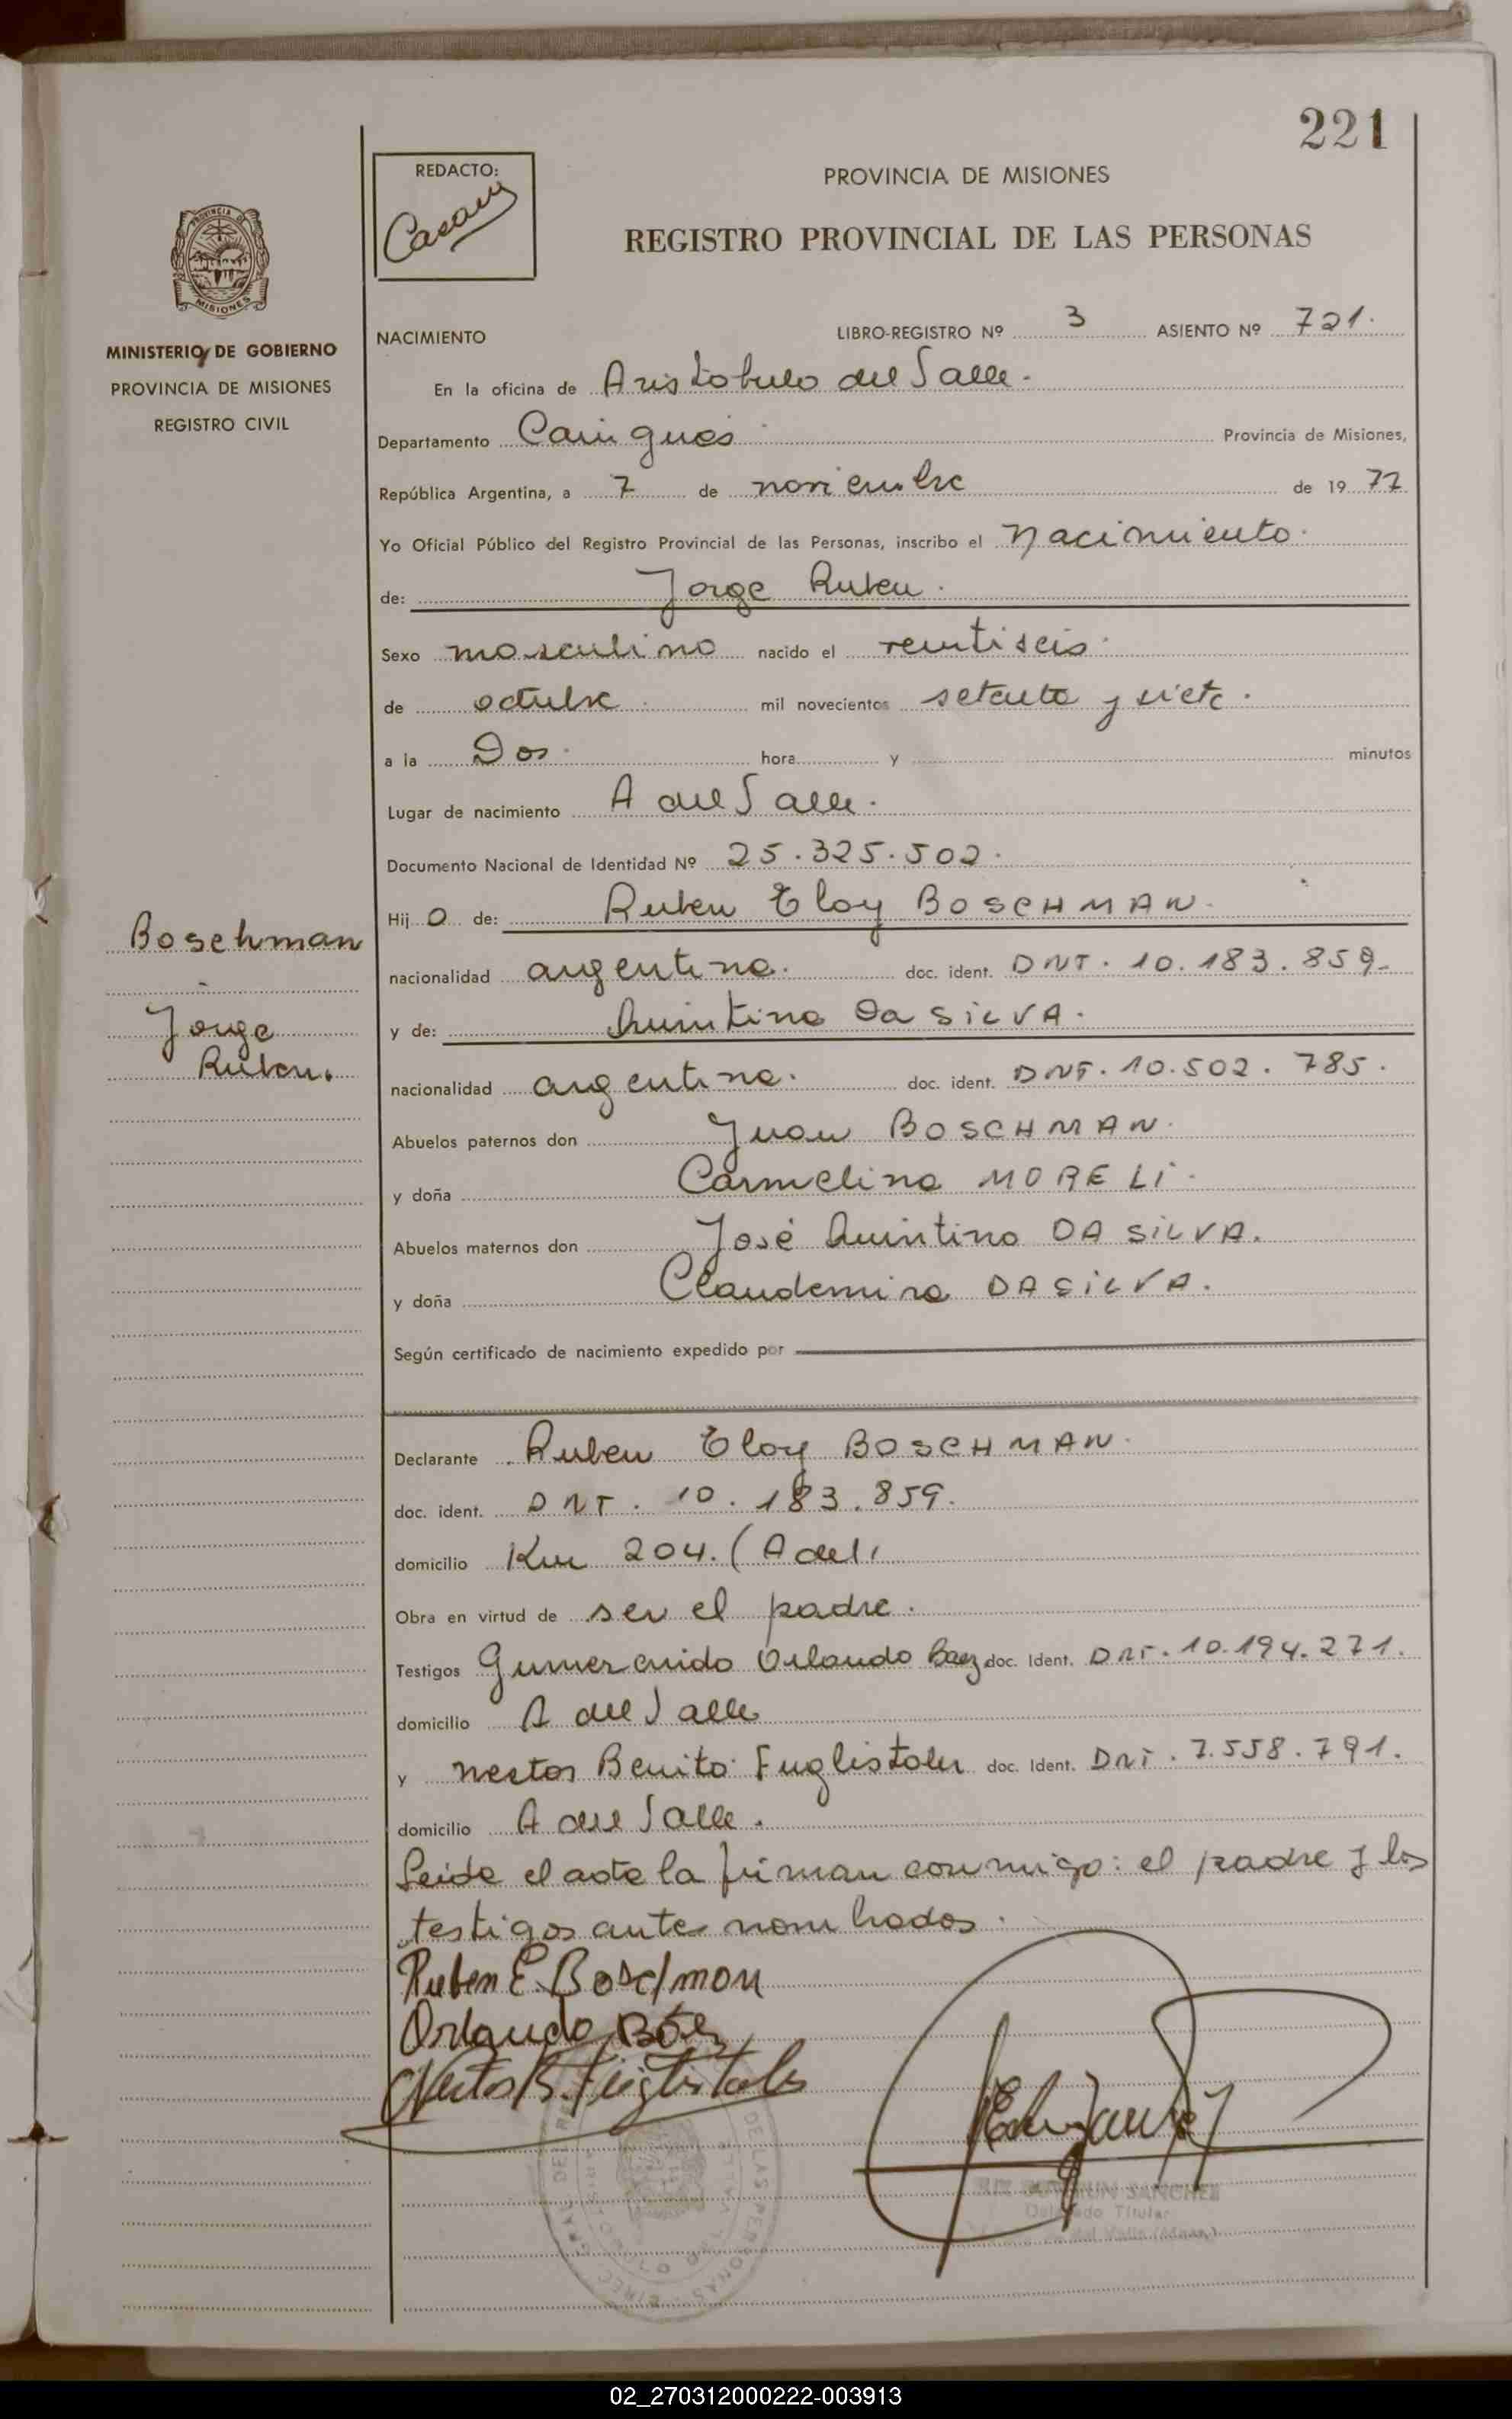 221
REDACTO:
PROVINCIA DE MISIONES
REGISTRO PROVINCIAL DE LAS PERSONAS
PROVINCIA DE
MISIONES
MINISTERIO DE GOBIERNO
PROVINCIA DE MISIONES
REGISTRO CIVIL
NACIMIENTO LIBRO-REGISTRO Nº 3 ASIENTO Nº 721.
En la oficina de Aristobulo del Valle.
Departamento Cainguás Provincia de Misiones,
República Argentina, a 7 de noviembre de 19 77
Yo Oficial Público del Registro Provincial de las Personas, inscribo el nacimiento.
de: Jorge Ruben.
Sexo masculino nacido el veintiseis
de octubre mil novecientos setenta y siete.
a la Dos hora y minutos
Lugar de nacimiento A del Valle.
Documento Nacional de Identidad Nº 25.325.502.
Hij o de: Ruben Eloy BOSCHMAN
nacionalidad argentina. doc. ident. DNI. 10.183.859.
y de: Quintina Da SILVA.
nacionalidad argentina. doc. ident. DNI. 10.502.785.
Abuelos paternos don Juan BOSCHMAN.
y doña Carmelina MORELI.
Abuelos maternos don José Quintino DA SILVA.
y doña Claudemira DA SILVA.
Según certificado de nacimiento expedido por
Boschman
Jorge
Ruben.
Declarante Ruben Eloy BOSCHMAN.
doc. ident. DNI. 10.183.859.
domicilio Km 204. (A del
Obra en virtud de ser el padre.
Testigos Gumercindo Orlando Baez doc. Ident. DNI. 10.194.271.
domicilio A del Valle
y nestor Benito Fuglistaler doc. Ident. DNI. 7.558.791.
domicilio A del Valle.
Leida el acta la firman conmigo: el padre y los
testigos ante nombrados.
Ruben E. Boschman
Orlando Báez
Nestor B. Fuglistaler
SANCHEZ
Delegado Titular
del Valle (Mnes.)
02_270312000222-003913